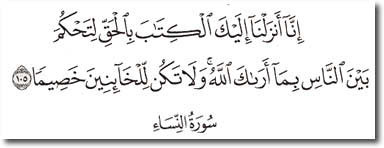 إِنَّآ أَنزَلْنَآ إِلَيْكَ ٱلْكِتَٰبَ بِٱلْحَقِّ لِتَحْكُمَ
بَيْنَ ٱلنَّاسِ بِمَآ أَرَىٰكَ ٱللَّهُ ۚ وَلَا تَكُن لِّلْخَآئِنِينَ خَصِيمًا ١٠٥
سُورَةُ النِّسَاءِ